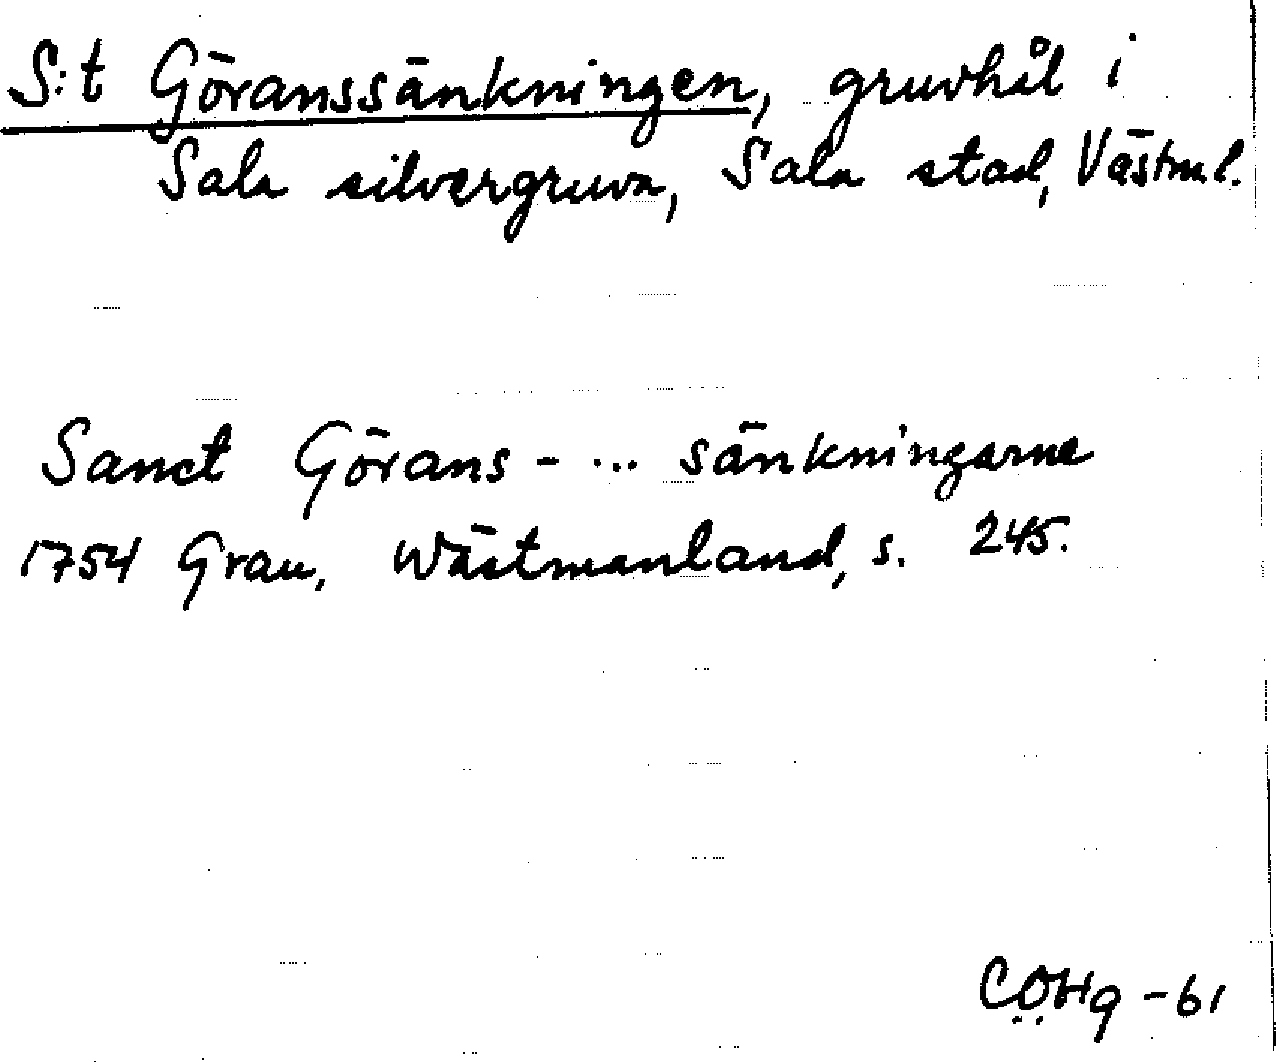 S:t Göranssänkningen, gruvhål i
Sala silvergruva, Sala stad, Västml.
Sanct Görans - ... sänkningarne
1754 Grau, Wästmanland, s. 245.
CÖHg -61